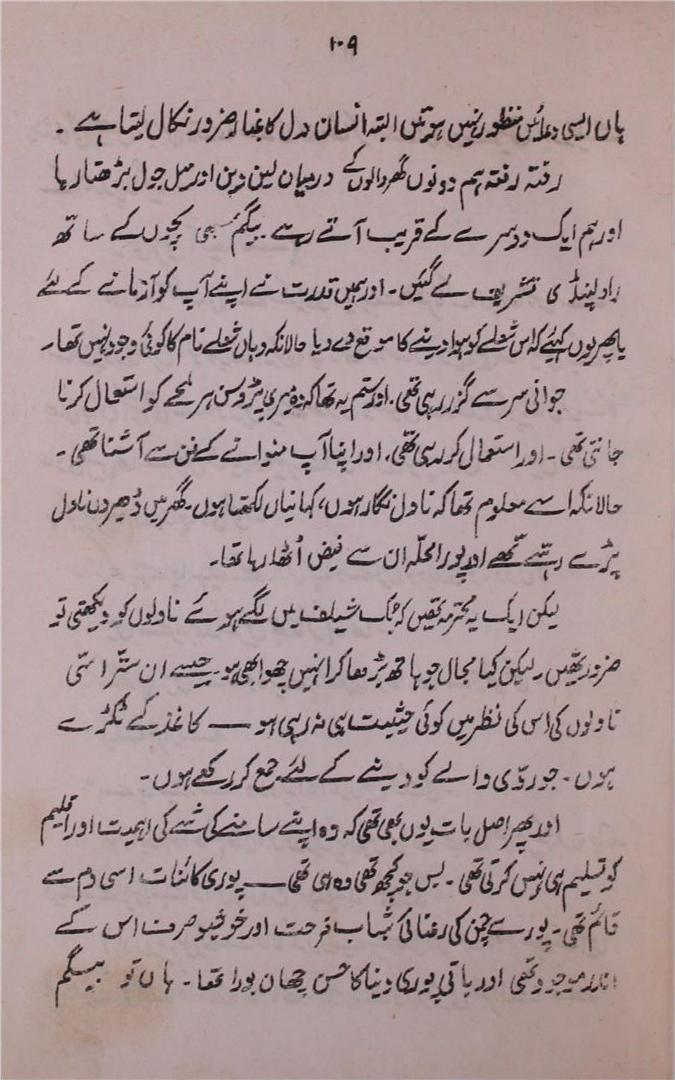 ۱۰۹
ہاں ایسی دعائیں منظور نہیں ہوتیں البتہ انسان دل کا غبار ضرور نکال لیتا ہے ۔
رفتہ رفتہ ہم دونوں گھر والوں کے درمیان لین دین اور میل جول بڑھتا رہا
اور ہم ایک دوسرے کے قریب آتے رہے بیگم سبھی بچوں کے ساتھ
راولپنڈی تشریف لے گئیں ۔ اور ہمیں قدرت نے اپنے آپ کو آزمانے کے لئے
یا پھر یوں کہئیے کہ اس شعلے کو ہوا دینے کا موقع دے دیا حالانکہ وہاں شعلے نام کا کوئی وجود نہیں تھا ۔
جوانی سر سے گزر رہی تھی ۔ اور ستم یہ تھا کہ وہ میری پڑوسن ہر لمحے کو استعمال کرنا
جانتی تھی ۔ اور استعمال کر رہی تھی، اور اپنا آپ منوانے کے فن سے آشنا تھی ۔
حالانکہ اسے معلوم تھا کہ ناول نگار ہوں، کہانیاں لکھتا ہوں ۔ گھر میں ڈھیروں ناول
پڑے رہتے تھے اور پورا محلہ ان سے فیض اُٹھا رہا تھا ۔
لیکن ایک یہ محترمہ تھیں کہ بک شیلف میں لگے ہوئے ناولوں کو دیکھتی تو
ضرور تھیں ۔ لیکن کیا مجال جو ہاتھ بڑھا کر انہیں چھوا بھی ہو ۔ جیسے ان ستّر اسّی
ناولوں کی اس کی نظر میں کوئی حیثیت ہی نہ رہی ہو — کاغذ کے ٹکڑے
ہوں ۔ جو ردّی والے کو دینے کے لئے جمع کر رکھے ہوں ۔
اور پھر اصل بات یوں بھی تھی کہ وہ اپنے سامنے کی شے کی اہمیت اور اقلیم
کو تسلیم ہی نہیں کرتی تھی ۔ بس جو کچھ تھی وہ ہی تھی — پوری کائنات اسی دم سے
قائم تھی ۔ پورے چمن کی رعنائی شباب فرحت اور خوشبو صرف اس کے
اندر موجود تھی اور باقی پوری دنیا کا حسن چھان بورا تھا ۔ ہاں تو بیگم